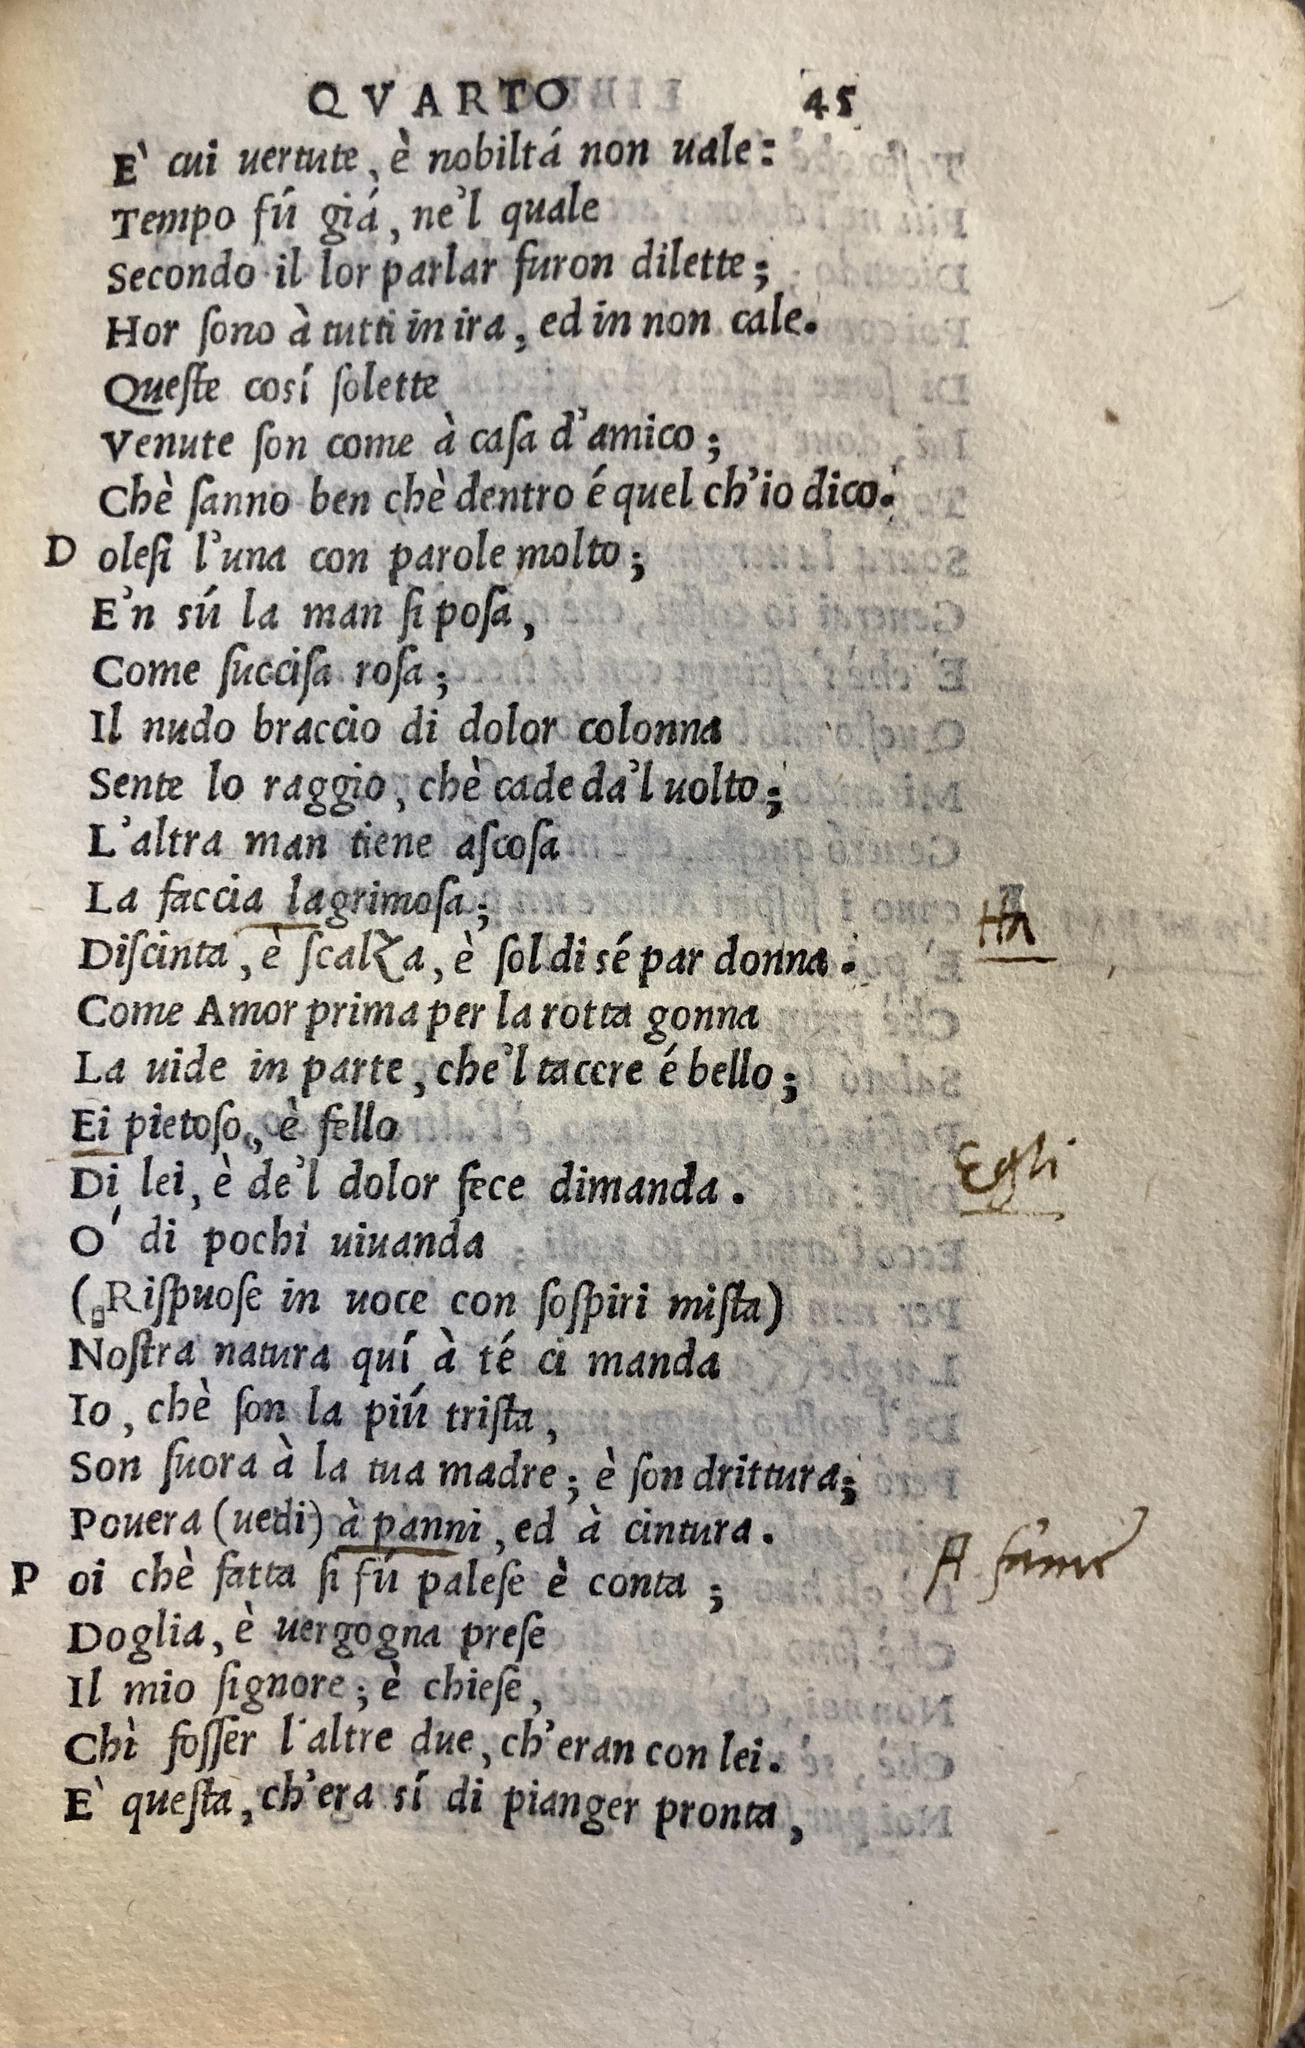 QVARTO 45
E` cui uertute, è nobiltá non uale:
Tempo fú giá, ne'l quale
Secondo il lor parlar furon dilette;
Hor ſono à tutti in ira, ed in non cale.
Queſte cosí ſolette
Venute ſon come à caſa d'amico;
Chè ſanno ben chè dentro é quel ch'io dico.
Doleſi l'una con parole molto;
E'n sú la man ſi poſa,
Come ſucciſa roſa;
Il nudo braccio di dolor colonna
Sente lo raggio, chè cade da'l uolto;
L'altra man tiene aſcoſa
La faccia lagrimoſa;
Diſcinta, è ſcalza, è ſol di sé par donna.
Ha
Come Amor prima per la rotta gonna
La uide in parte, che'l tacere é bello;
Ei pietoſo, è fello
Egli
Di lei, è de'l dolor fece dimanda.
O' di pochi uiuanda
(Riſpuoſe in uoce con ſoſpiri miſta)
Noſtra natura quí à té ci manda
Io, chè ſon la piú triſta,
Son ſuora à la tua madre; è ſon drittura;
Pouera (uedi) à panni, ed à cintura.
A fame
Poi chè fatta ſi fú paleſe è conta;
Doglia, è uergogna preſe
Il mio ſignore; è chieſe,
Chì foſſer l'altre due, ch'eran con lei.
E` queſta, ch'era sí di pianger pronta,